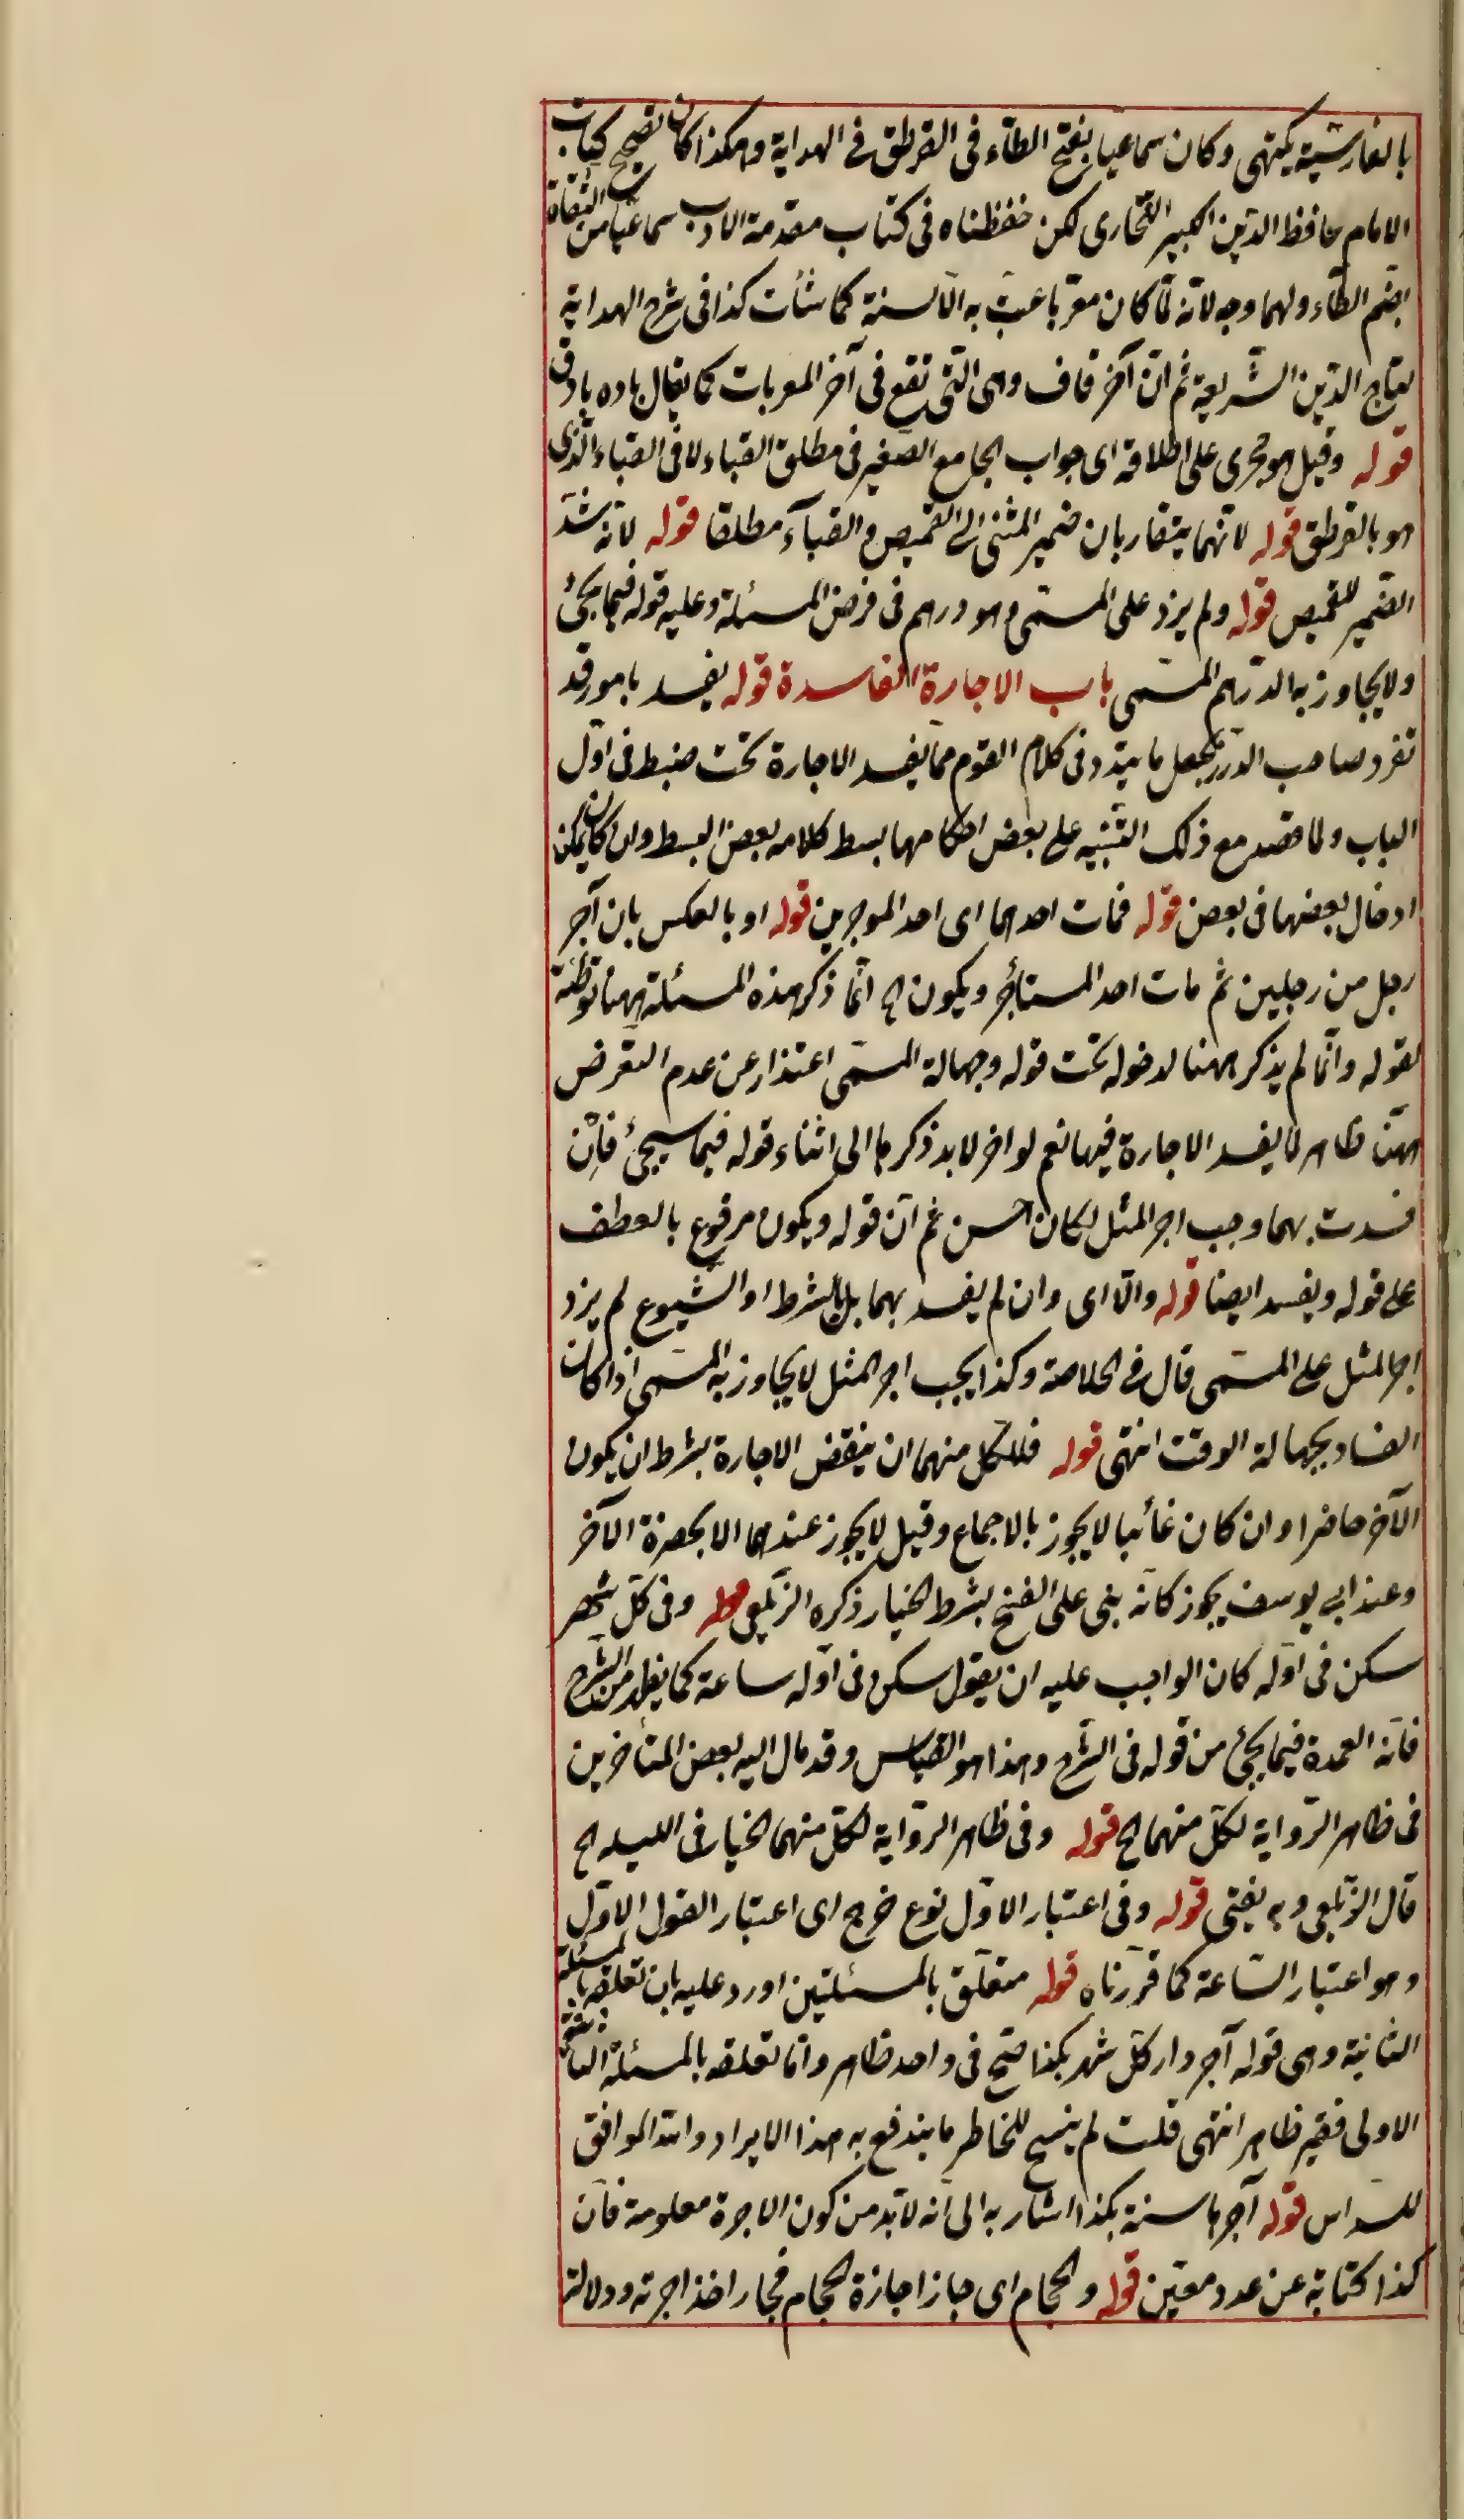 بالفارسية يكتهى وكان سماعيا بفتح الطآء فى القرطق فى الهداية وهكذا كان تصحيح كتاب
الامام حافظ الدين الكبير البخارى لكن حفظناه فى كتاب مقدمة الادب سماعيا من الثقاة
بضم الطآء ولهما وجه لانه لما كان معربا عبث به الالسنة كما شأت كذا فى شرح الهداية
لتاج الدين الشريعة ثم ان آخر قاف وهى التى تقع فى آخر المعربات كما يقال باده باذق
قوله وقيل هو مجرى على اطلاقه اى جواب الجامع الصغير فى مطلق القباء لا فى القباء الذى
هو بالقرطق قوله لانهما يتقاربان ضمير المثنى الى القميص و القبآء مطلقا قوله لانه شد
الضمير للقميص قوله ولم يزد على المسمى وهو درهم فى فرض المسئلة وعليه قوله فيما يجئ
ولا يجاوز به الدرهم المسمى باب الاجارة الفاسدة قوله يفسد بامور قد
تفرد صاحب الدرر بجعل ما يتدد فى كلام القوم مما يفسد الاجارة تحت ضبط فى اول
الباب ولما قصد مع ذلك التنبيه على بعض احكامها بسط كلامه بعض البسط وان كان يمكن
ادخال بعضها فى بعض قوله فمات احدهما اى احد الموجرين قوله او بالعكس بان آجر
رجل من رجلين ثم مات احد المستأجر ويكون الخ انما ذكر هذه المسئلة ههنا توطئة
لقوله وانما لم يذكر ههنا لدخوله تحت قوله وجهالة المسمى اعتذار عن عدم التعرض
ههنا ظاهر لما يفسد الاجارة فيها نعم لو اخر لا بد ذكرها الى اثناء قوله فيما سيجئ فان
فسدت بهما وجب اجر المثل لكان احسن ثم ان قوله ويكون مرفوع بالعطف
على قوله ويفسد ايضا قوله والا اى وان لم يفسد بهما بل بالشرط او الشيوع لم يزد
اجر المثل على المسمى قال فى الخلاصة وكذا يجب اجر المثل لا يجاوز به المسمى اذا كان
الفساد بجهالة الوقت انتهى قوله فلكل منهما ان ينقض الاجارة بشرط ان يكون
الآخر حاضرا وان كان غائبا لا يجوز بالاجماع وقيل لا يجوز عندهما الا بحضرة الآخر
وعند ابى يوسف يجوز كانه بنى على الفسخ بشرط الخيار ذكره الزيلعى قوله وفى كل شهر
سكن فى اوله كان الواجب عليه ان يقول سكن فى اوله ساعة كما يفعل من الشرح
فانه العمدة فيما يجئ من قوله فى الشرح وهذا هو القياس وقد مال اليه بعض المتأخرين
فى ظاهر الرواية لكل منهما الخ قوله وفى ظاهر الرواية لكل منهما الخيار فى الليلة الخ
قال الزيلعى وبه يفتى قوله وفى اعتبار الاول نوع حرج اى اعتبار القول الاول
وهو اعتبار الساعة كما قررناه قوله متعلق بالمسئلتين اورد عليه بان تعلقه بالمسئلة
الثانية وهى قوله آجر دار كل شهر بكذا صح فى واحد ظاهر واما تعلقه بالمسئلة
الاولى فغير ظاهر انتهى قلت لم يسنح للخاطر ما يندفع به هذا الايراد والله الموافق
للسداس قوله آجرها سنة بكذا اشار به الى انه لا بد من كون الاجرة معلومة فان
كذا كناية عن عدد معين قوله والحجام اى جاز اجارة الحجام فجاز اخذ اجرته ودلالته